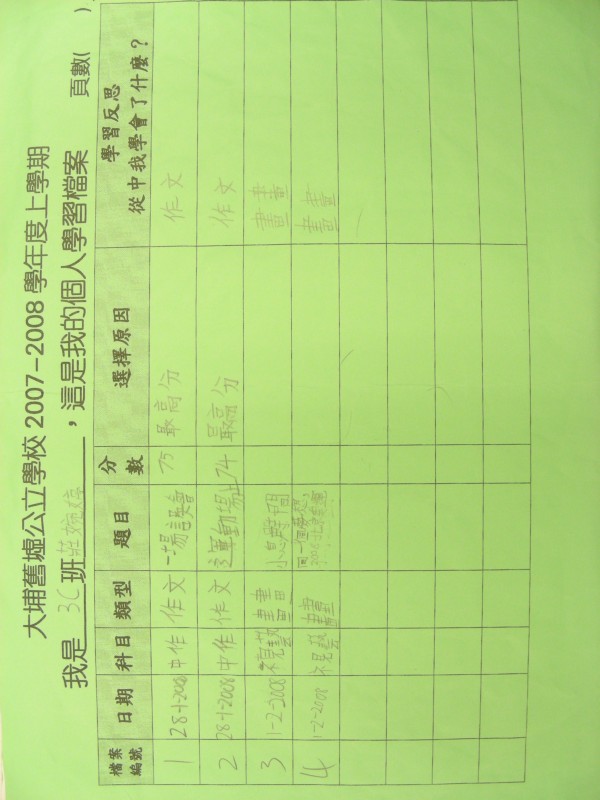 大埔舊墟公立學校 2007-2008 學年度上學期
我是 3C 班 莊婉婷，這是我的個人學習檔案 頁數( )
檔案編號 日期 科目 類型 題目 分數 選擇原因 學習反思 從中我學會了什麼？
1 28-1-2008 中作 作文 一場誤會 75 最高分 作文
2 28-1-2008 中作 作文 運動場上 74 最高分 作文
3 1-2-2008 視藝 畫畫 畫畫
4 1-2-2008 視藝 畫 畫畫